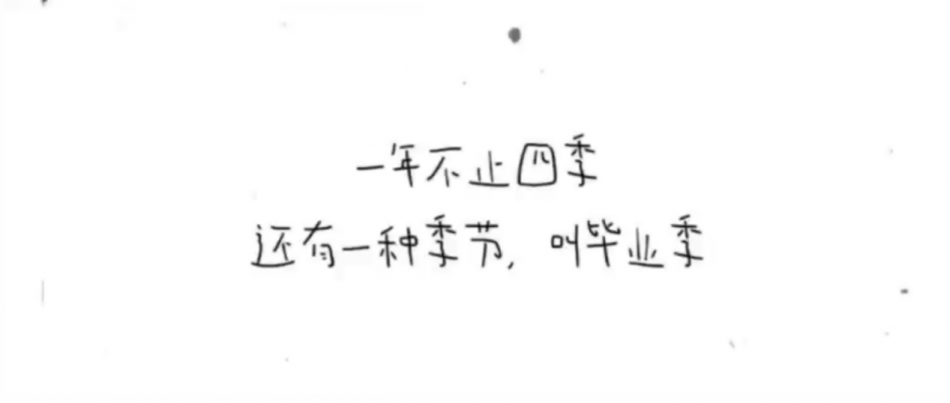 一年不止四季
还有一种季节，叫毕业季